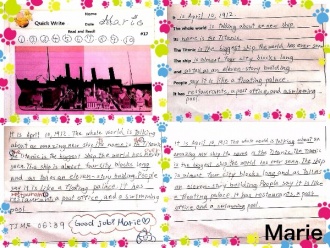 Quick Write
Name
Date
Marie
Read and Reread
#37
1 2 3 4 5 6 7 8 9 10
10 April 10, 1912.
The whole world is talking about a new ship
name is the Titanic.
The Titanic is the biggest ship the world has ever seen
The ship is almost four city blocks long
and as an eleven-story building
People say it is like a floating palace.
It has restaurants, a post office, and a swimming
pool.
It is April 10, 1912. The whole world is talking
about an amazing new ship
The Titanic is the biggest ship the world has ever
seen. The ship is almost four city blocks long
and as tall as an eleven-story building. People
say it is like a floating palace. It has
restaurants, a post office, and a swimming
pool.
TIME 06:89
Good job!! Marie
It is April 10, 1912. The whole world is talking about an
amazing new ship name is the Titanic. The Titanic
is the biggest ship the world has ever seen. The ship
is almost four city blocks long, and as tall as
an eleven-story building. People say it is like
a floating palace. It has restaurants, a post
office, and a swimming pool.
Marie